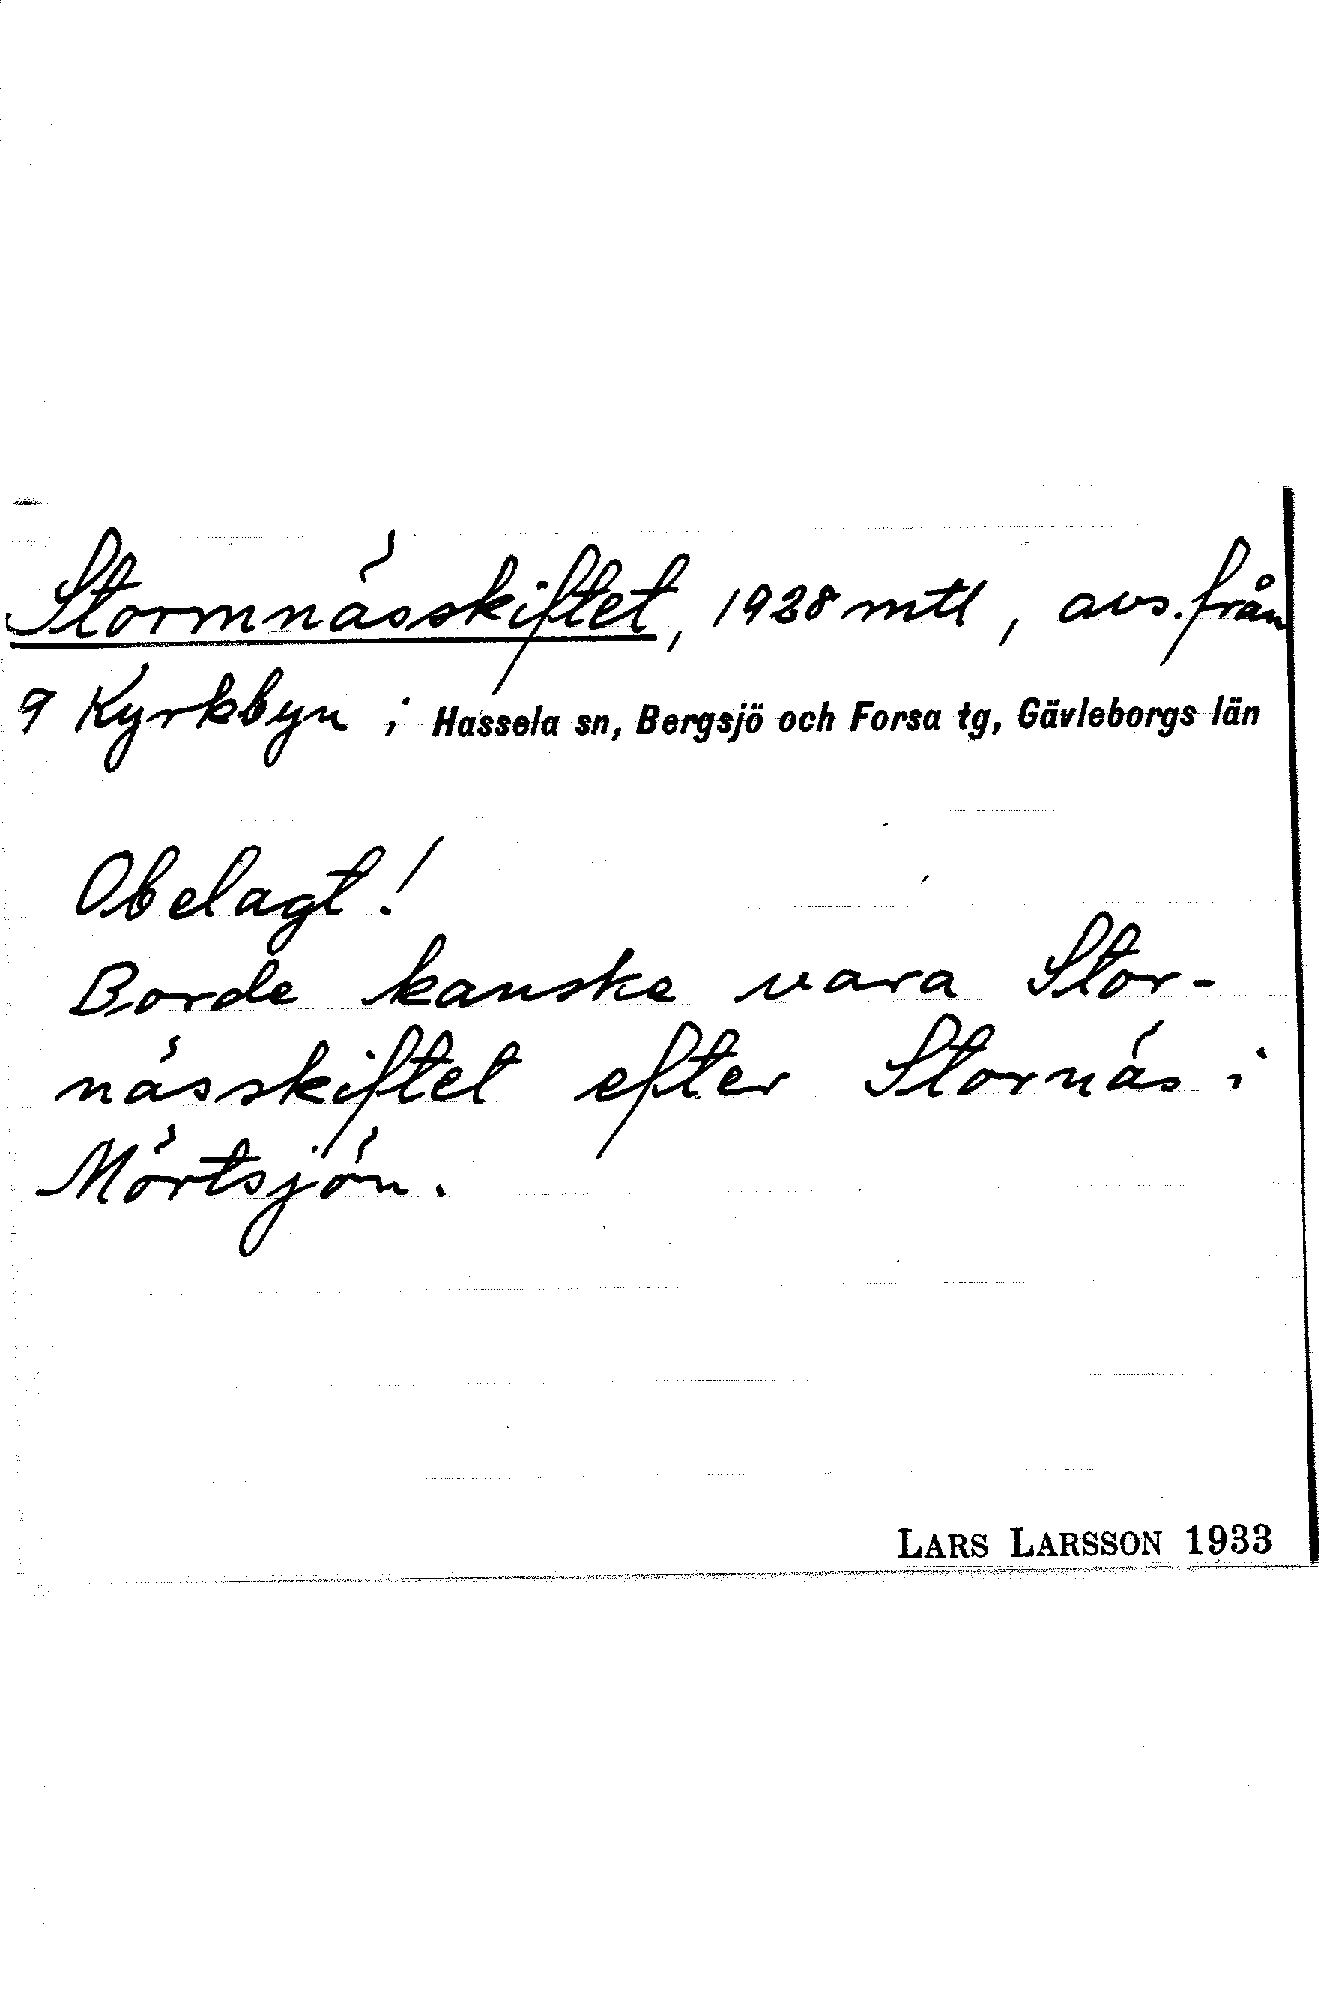 Stormnässkiftet, 1928 mtl, avs. från
9 Kyrkbyn i Hassela sn, Bergsjö och Forsa tg, Gävleborgs län
Obelagt!
Borde kanske vara Stor-
nässkiftet efter Stornäs i
Mörtsjön.
LARS LARSSON 1933